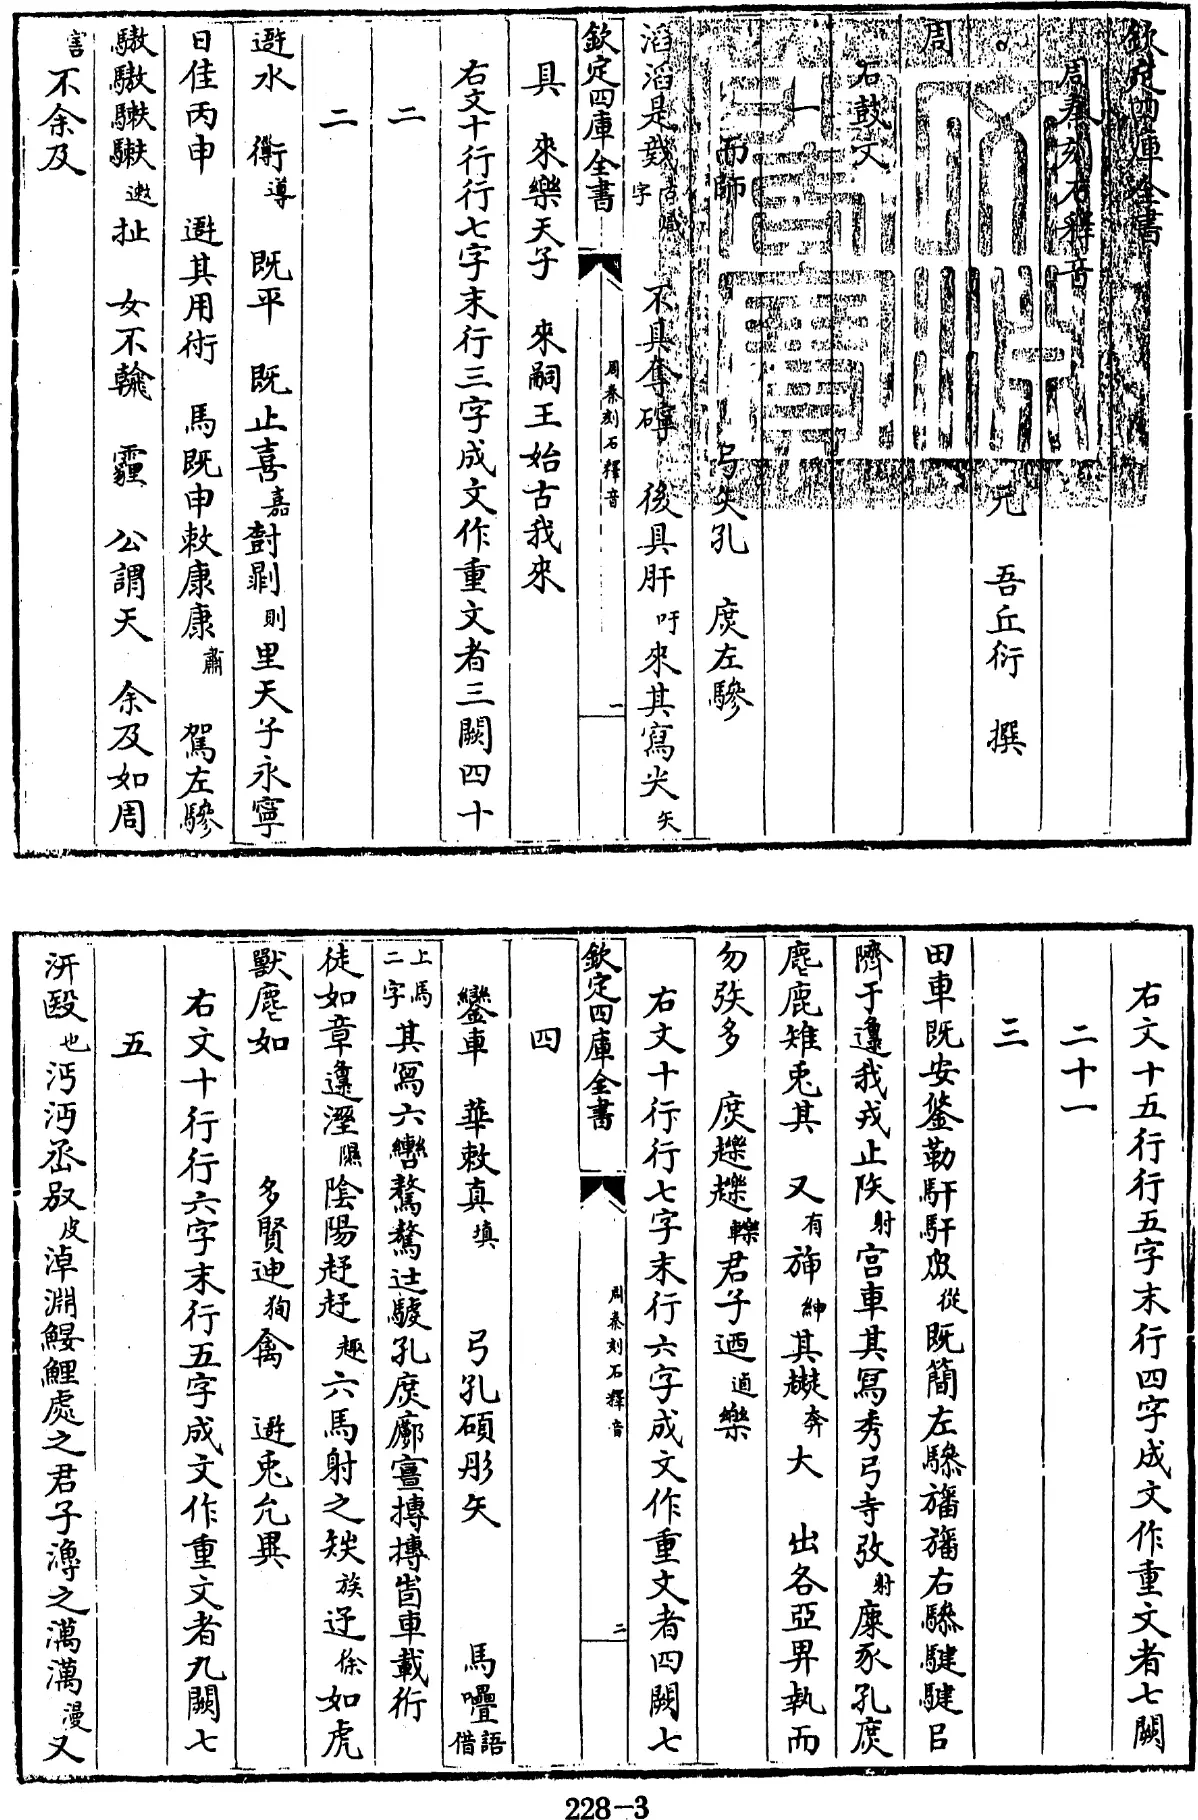 欽定四庫全書
周秦刻石釋音
元　吾丘衍　撰
周
石鼓文
一
而師　弓矢孔　庶左驂
滔滔是戠　不具奪　後具肝吁來其寫尖矢
欽定四庫全書
周秦刻石釋音
一
具　來樂天子　來嗣王始古我來
右文十行行七字末行三字成文作重文者三闕四十
二
二
遊水　衜導　既平　既止喜嘉尌剭則里天子永寧
日隹丙申　遊其用術　馬既申敕康康肅　駕左驂
驐驐騋騋　女不翰　霾　公謂天　余及如周
害不余及
右文十五行行五字末行四字成文作重文者七闕
二十一
三
田車既安鋚勒馯馯從既簡左驂旛旛右驂騝騝㠯
隮于邍我戎止射宮車其寫秀弓寺射麋豕孔庶
麀鹿雉兎其　又有旆紳其奔大　出各亞昇執而
勿㢮多　庶趮趮轢君子迺樂
右文十行行七字末行六字成文作重文者四闕七
欽定四庫全書
周秦刻石釋音
二
四
鑾車　華敕真填　弓孔碩彤矢　馬嘼借語
上馬二字其寫六轡騖騖辻孔庶廓宣搏搏眚車載術
徒如章邍溼隰陰陽趍趍趣六馬射之㺇族迂徐如虎
獸麀如　多賢迪禽　遊兎允異
右文十行行六字末行五字成文作重文者九闕七
五
汧殹也沔沔丞皮淖淵鰋鯉處之君子漁之澫澫漫又
228—3